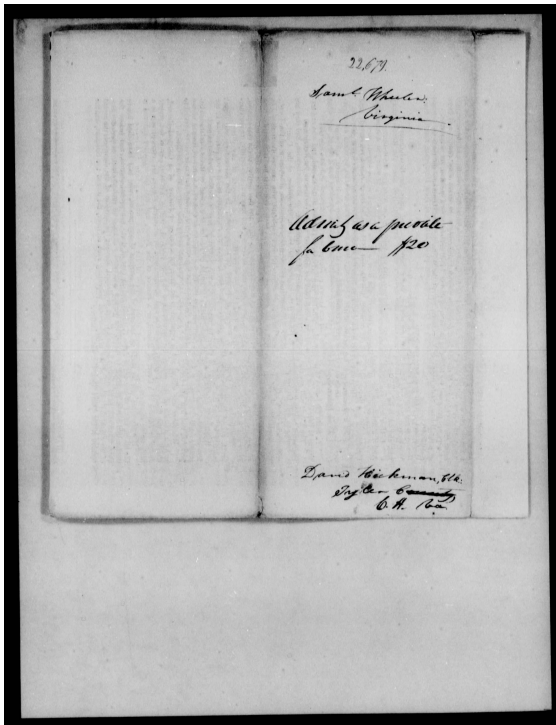 22,679.
Saml. Wheeler.
Virginia
Admit as a private
for $20
David Hickman, Clk.
Tyler County
C. H. Va.